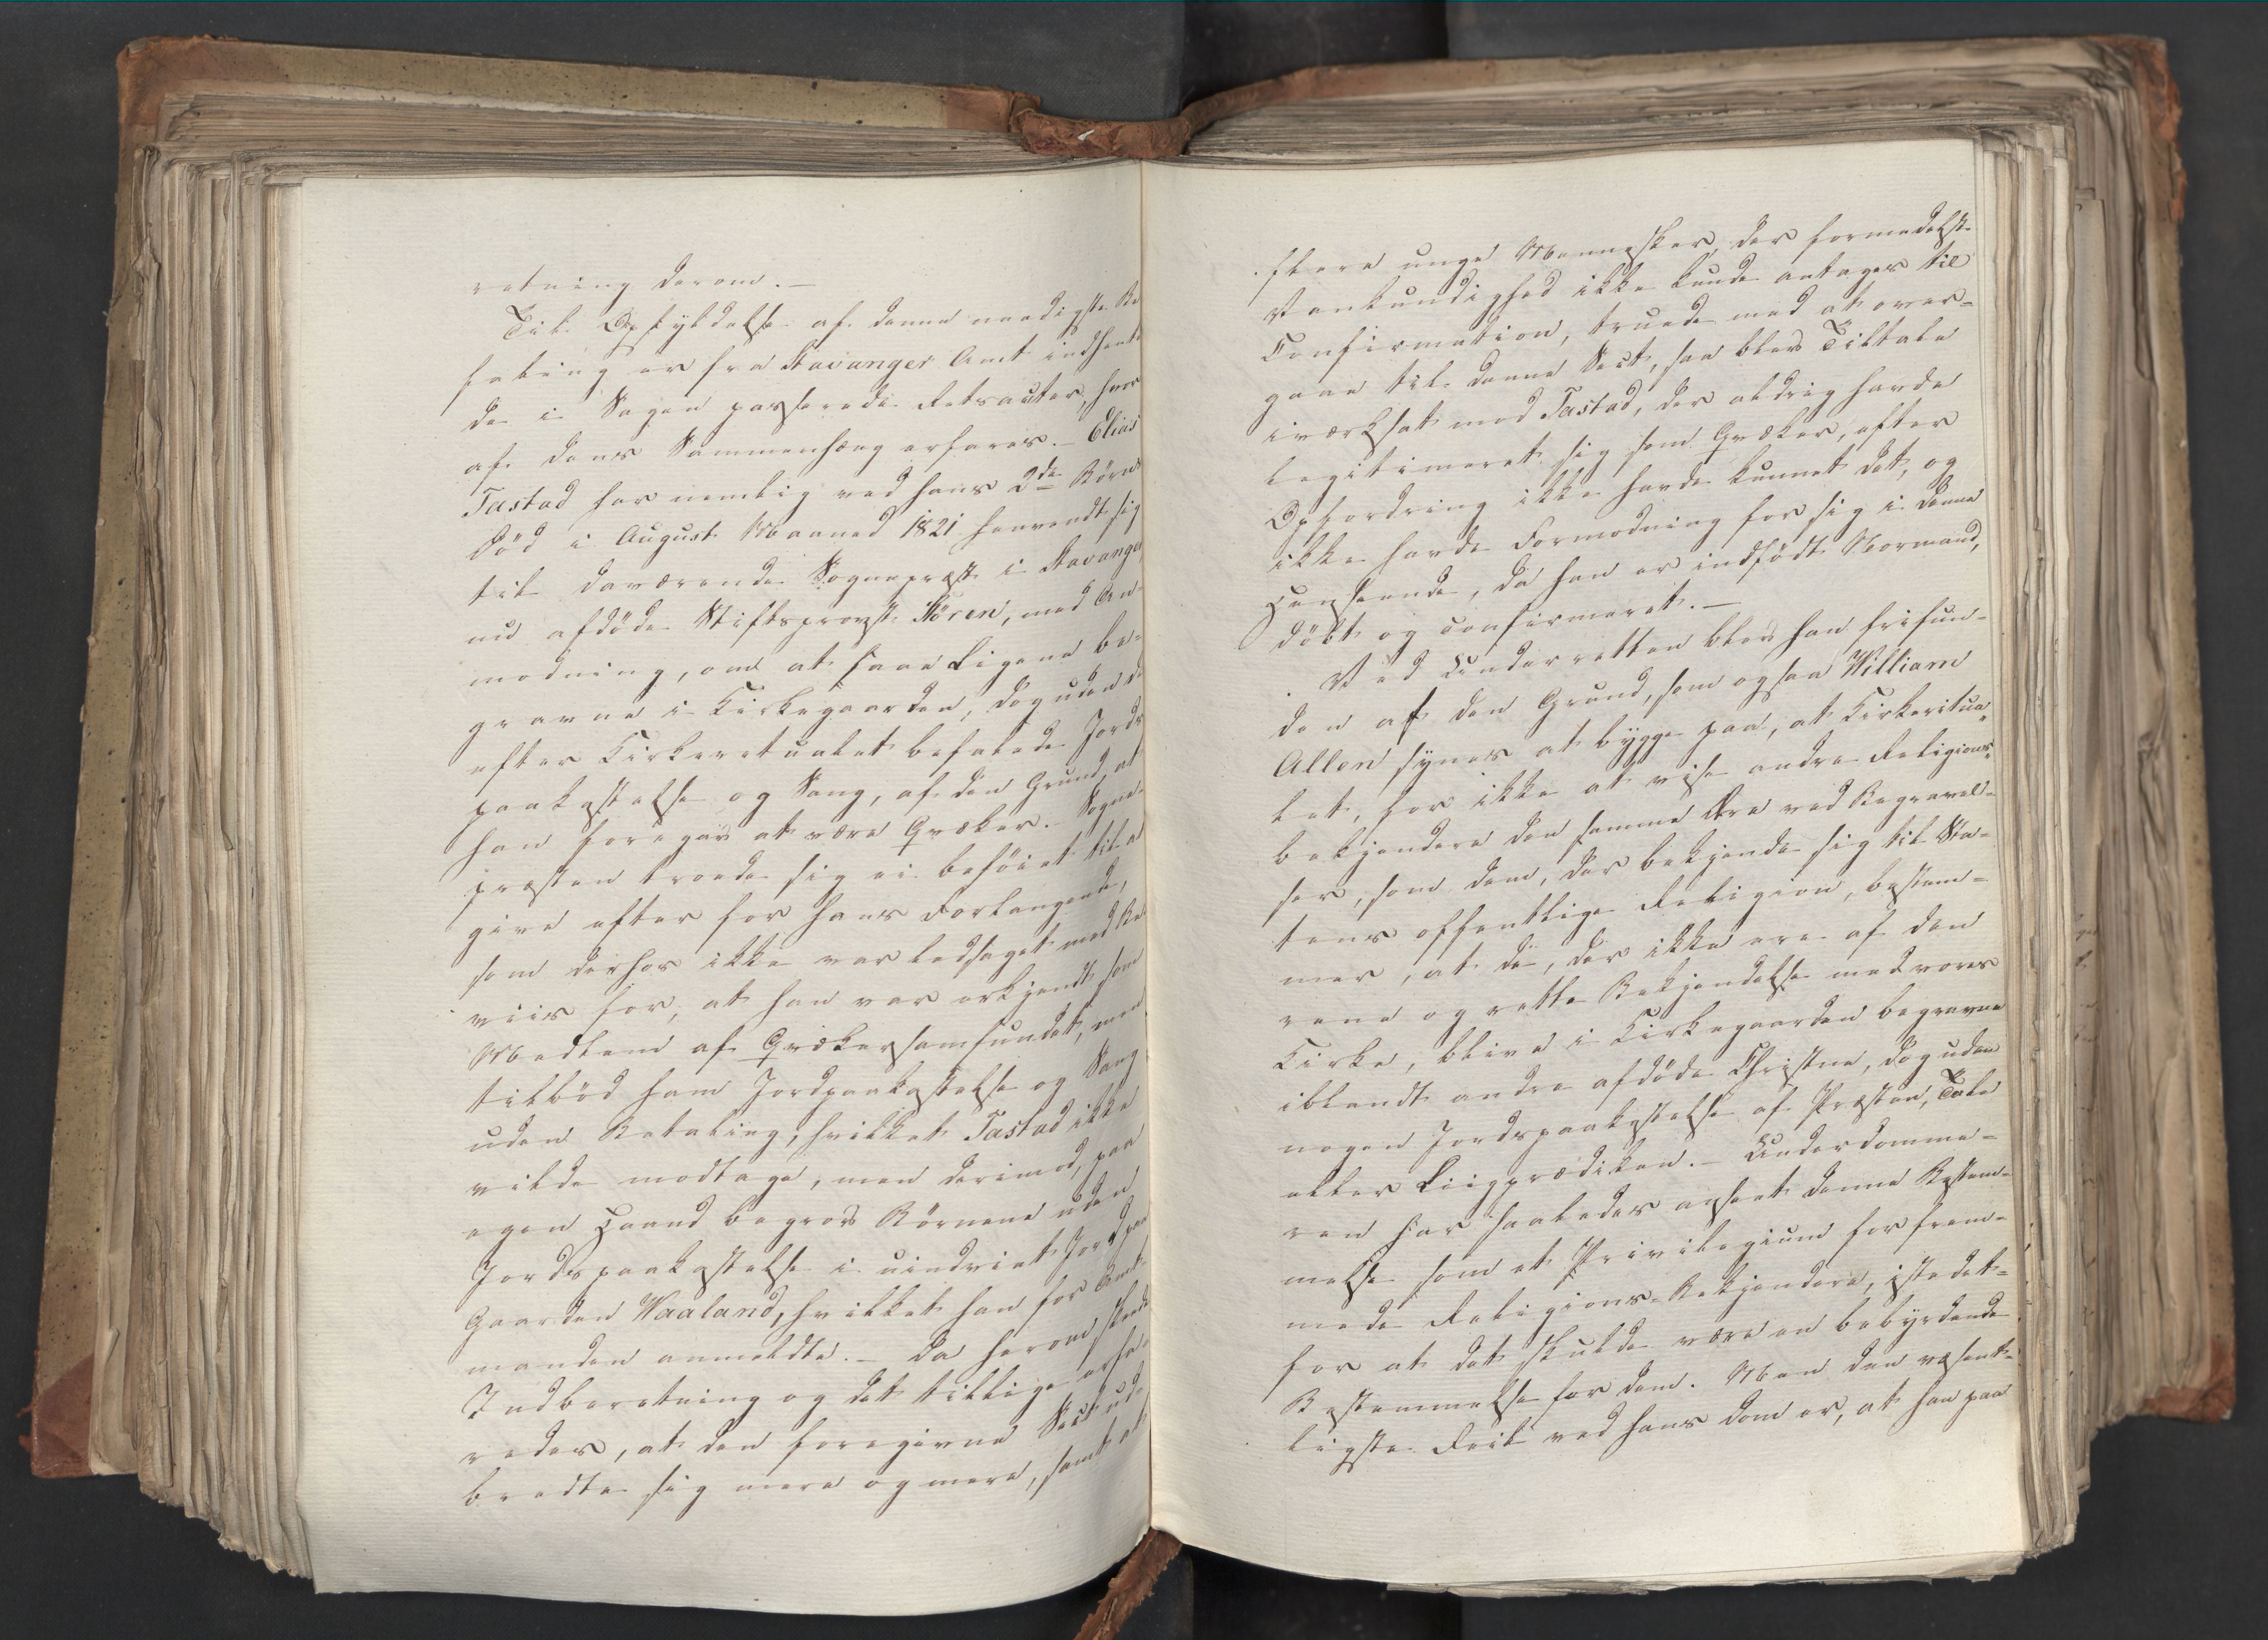 retning derom.—
Til Opfyldelse af denne naadigste Be
faling er fra Stavanger Amt indhente
de i Sagen passerede Retsacter, hvor
af dens Sammenhæng erfares.— Elias
Tastad har nemlig ved hans 2de Børns
Død i August Maaned 1821 henvendt sig
til daværende Sognepræst i Stavanger
nu afdøde Stiftsprovst Sören, med An-
modning, om at faae Ligene be-
gravne i Kirkegaarden, dog uden de
efter Kirkeretualet befalede Jords
paakastelse og Sang, af den Grund, at
han foregav at være Qvæker.— Sogne-
præsten troede sig ei beføiet til at
give efter for hans Forlangende,
som derhos ikke var ledsaget med Be
viis for, at han var erkjendt som
Medlem af Qvækersamfundet, men
tilbød ham Jordpaakastelse og Sang
uden Betaling, hvilket Tastad ikke
vilde modtage, men derimod, paa
egen Haand begrov Börnene uden
Jordspaakastelse i uindviet Jord paa
Gaarden Waaland, hvilket han for Amt
manden anmeldte.— Da herom skeede
Indberetning og det tillige erfa-
redes, at den foregivne Sect ud-
bredte sig mere og mere, samt at
flere unge Mennesker, der formedelst
Vankundighed ikke kunde antages til
Confirmation, truede med at over-
gaae til denne Sect, saa blev Tiltale
iværksat mod Tastad, der aldrig havde
legitimeret sig som Qvæker, efter
Opfordring ikke havde kunnet det, og
ikke havde Formodning for sig i denne
Henseende, da han er indfødt Normand,
döbt og confirmeret.—
Ved Underretten blev han frifun-
den af den Grund, som ogsaa William
Allen synes at bygge paa, at Kirkeritua-
let, for ikke at vise andre Religions-
bekjendere den samme Ære ved Begravel-
ser, som dem, der bekjende sig til Sta-
tens offentlige Religion, bestem-
mer, at de, der ikke ere af den
rene og rette Bekjendelse med vores
Kirke, blive i Kirkegaarden begravne
iblandt andre afdøde Christne, dog uden
nogen Jordspaakastelse af Præsten, Tale
eller Liigprædiken.— Underdomme-
ren har saaledes anseet denne Bestem-
melse som et Privilegium for frem-
mede Religions-Bekjendere, istedet-
for at det skulde være en bebyrdende
Bestemmelse for dem. Men den væsent-
ligste Feil ved hans Dom er, at han paa